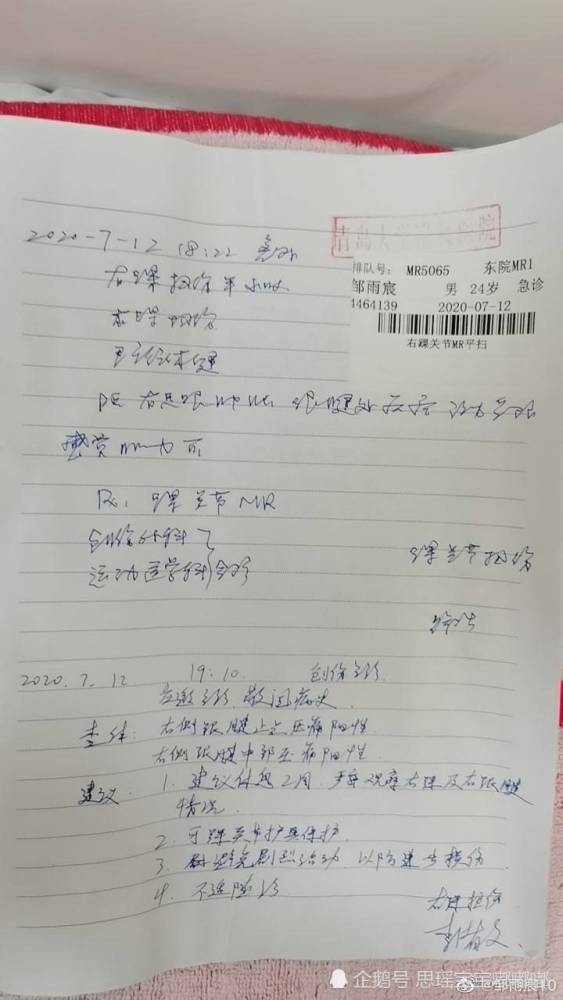 2020-7-12 18:22 急诊
青岛大学附属医院
排队号: MR5065 东院MR1
邹雨宸 男 24岁 急诊
4464139 2020-07-12
右踝关节MR平扫
右踝扭伤半小时
右踝扭伤
PE 右足跟
感觉 肌力可
Rx: 踝关节MR
创伤外科
运动医学科 会诊
踝关节扭伤
2020.7.12 19:10 创伤会诊
应邀会诊 敬阅病史
查体: 右侧跟腱止点压痛阳性
右侧跟腱中部压痛阳性
建议 1. 建议休息2月 观察右踝及右跟腱
情况
2. 可踝关节护具保护
3. 避免剧烈活动 以防进步损伤
4. 不适随诊
右踝扭伤
企鹅号 思瑶宝宝嘟嘟嘟
@邹雨宸10